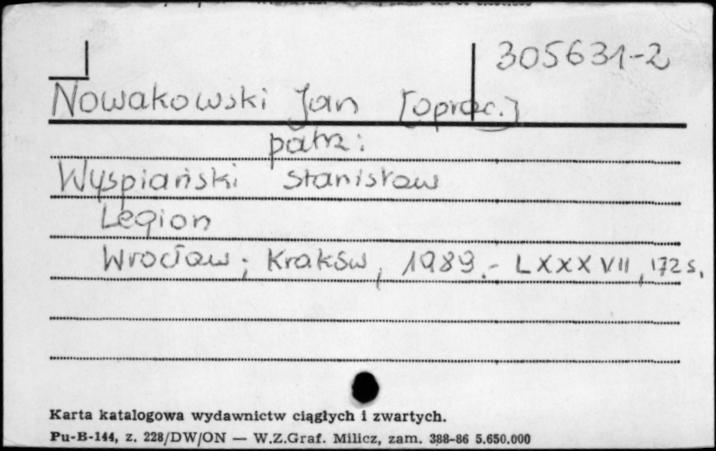 305631-2
Nowakowski Jan [oprac.]
patrz:
Wyspiański Stanisław
Legion
Wrocław; Kraków, 1989.- LXXXVII, 172 s.
Karta katalogowa wydawnictw ciągłych i zwartych.
Pu-B-144, z. 228/DW/ON — W.Z.Graf. Milicz, zam. 388-86 5.650.000